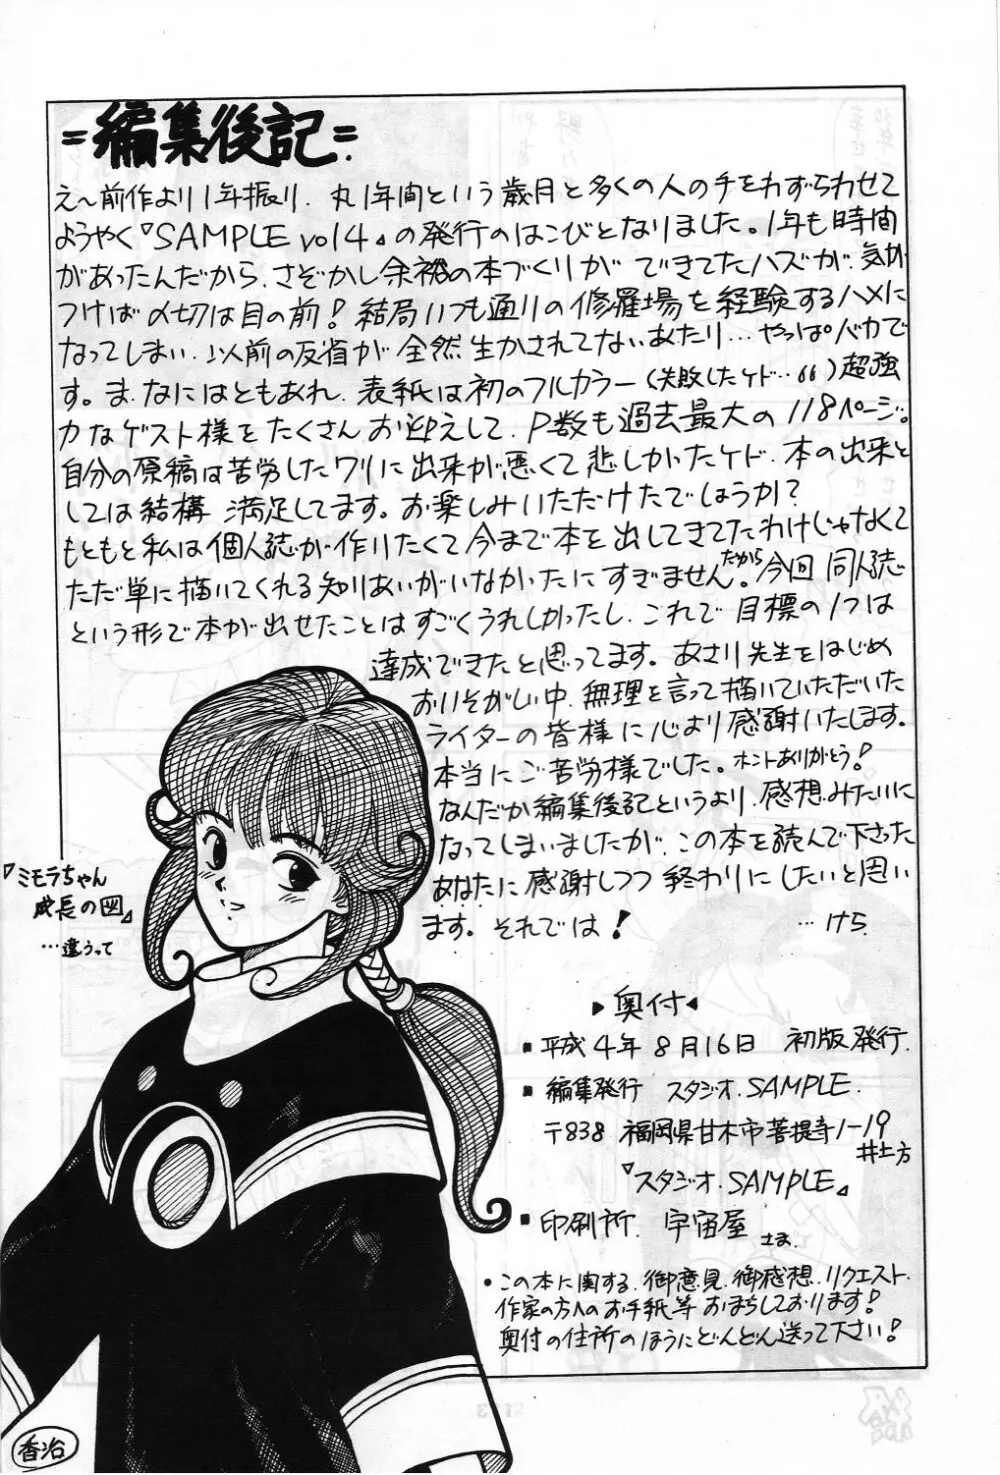 =編集後記=
え〜前作より1年振り、丸1年間という歳月と多くの人の手をわずらわせて
ようやく『SAMPLE vol4』の発行のはこびとなりました。1年も時間
があったんだから、さぞかし余裕の本づくりができてたハズが、気が
つけば〆切は目の前！結局いつも通りの修羅場を経験するハメに
なってしまい、以前の反省が全然生かされてないあたり…やっぱバカで
す。ま、なにはともあれ、表紙は初のフルカラー（失敗したケド…66）超強
力なゲスト様をたくさんお迎えして、P数も過去最大の118ページ。
自分の原稿は苦労したワリに出来が悪くて悲しかったケド、本の出来と
しては結構満足してます。お楽しみいただけたでしょうか？
もともと私は個人誌が作りたくて今まで本を出してきてたわけじゃなくて
ただ単に描いてくれる知りあいがいなかったにすぎません。だから今回同人誌
という形で本が出せたことはすごくうれしかったし、これで目標の1つは
達成できたと思ってます。あさり先生をはじめ
おいそがしい中、無理を言って描いていただいた
ライターの皆様に心より感謝いたします。
本当にご苦労様でした。ホントありがとう！
なんだか編集後記というより、感想みたいに
なってしまいましたが、この本を読んで下さった
あなたに感謝しつつ終わりにしたいと思い
ます。それでは！ …けら
『ミモラちゃん
成長の図』
…違うって
▶奥付◀
■平成4年8月16日 初版発行.
■編集発行 スタジオ.SAMPLE.
〒838 福岡県甘木市菩提寺1-19
井土方
『スタジオ.SAMPLE』
■印刷所. 宇宙屋 さま.
•この本に関する、御意見、御感想、リクエスト、
作家の方へのお手紙等おまちしております！
奥付の住所のほうにどんどん送って下さい！
香治